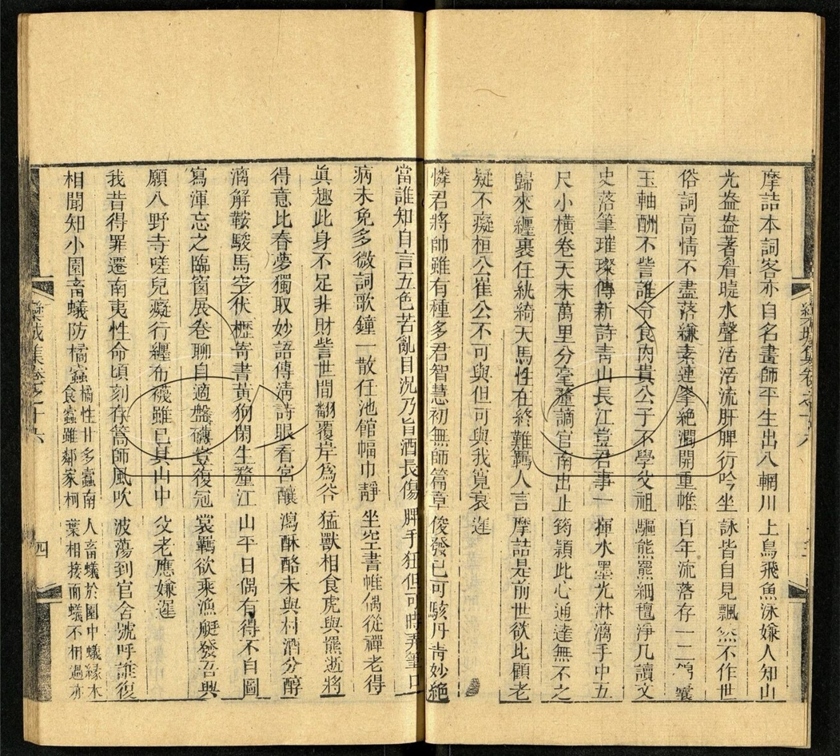 摩詰本詞客亦自名畫師平生出入輞川上鳥飛魚泳嫌人知山
光盎盎著眉睫水聲活活流肝脾行吟坐詠皆自見飄然不作世
俗詞高情不盡落縑素連峯絕澗開重帷百年流落存一二錦囊
玉軸酬不訾誰令食肉貴公子不學父祖驅熊羆細氊淨几讀文
史落筆璀璨傳新詩青山長江豈君事一揮水墨光淋漓手中五
尺小橫卷天末萬里分毫釐謫官南出止筠潁此心通達無不之
歸來纏裹任紈綺天馬性在終難羈人言摩詰是前世欲比顧老
疑不癡桓公崔公不可與但可與我寬衰遲
憐君將帥雖有種多君智慧初無師篇章俊發已可駭丹青妙絕
當誰知自言五色苦亂目況乃旨酒長傷脾手狂但可時弄筆口
病未免多微詞歌鐘一散任池館幅巾靜坐空書帷偶從禪老得
眞趣此身不足非財訾世間翻覆岸爲谷猛獸相食虎與羆逝將
得意比春夢獨取妙語傳清詩眼看宮釀瀉酥酪未與村酒分醇
漓解鞍駿馬空伏櫪寄書黃狗閑生釐江山平日偶有得不自圖
寫渾忘之臨窗展卷聊自適盤礴豈復冠裳羈欲乘漁艇發吾興
願入野寺嗟兒癡行纏布襪雖已具山中父老應嫌遲
我昔得罪遷南夷性命頃刻存篙師風吹波蕩到官舍號呼誰復
相聞知小園畜蟻防橘蠹橘性甘多蠹南人畜蟻於園中蟻緣木
食蠹雖鄰家柯葉相接而蟻不相過亦
欒城集卷之十六 四